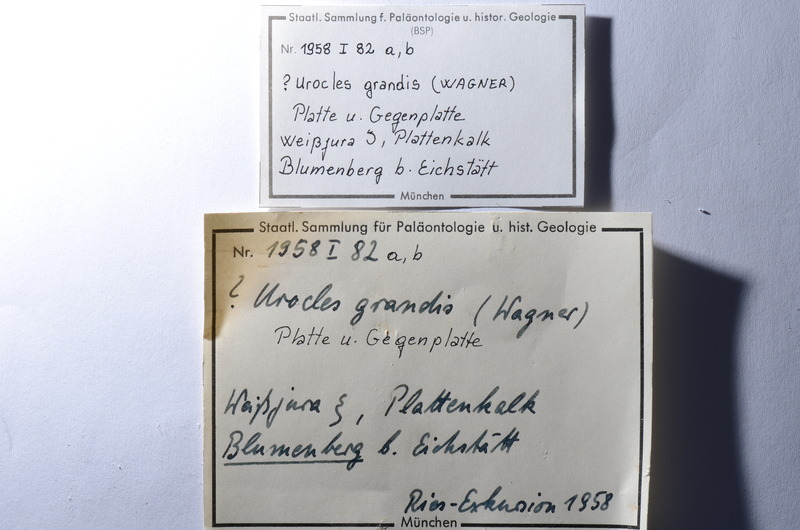 Staatl. Sammlung f. Paläontologie u. histor. Geologie
(BSP)
Nr. 1958 I 82 a, b
? Urocles grandis (WAGNER)
Platte u. Gegenplatte
Weißjura ζ, Plattenkalk
Blumenberg b. Eichstätt
München
Staatl. Sammlung für Paläontologie u. hist. Geologie
Nr. 1958 I 82 a, b
? Urocles grandis (Wagner)
Platte u. Gegenplatte
Weißjura ξ, Plattenkalk
Blumenberg b. Eichstätt
Ries-Exkursion 1958
München